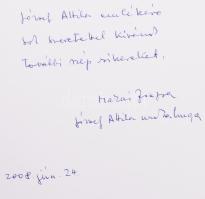 József Attila emlékére
sok szeretettel kívánok
további szép sikereket.
József Attila
2008. jún. 24